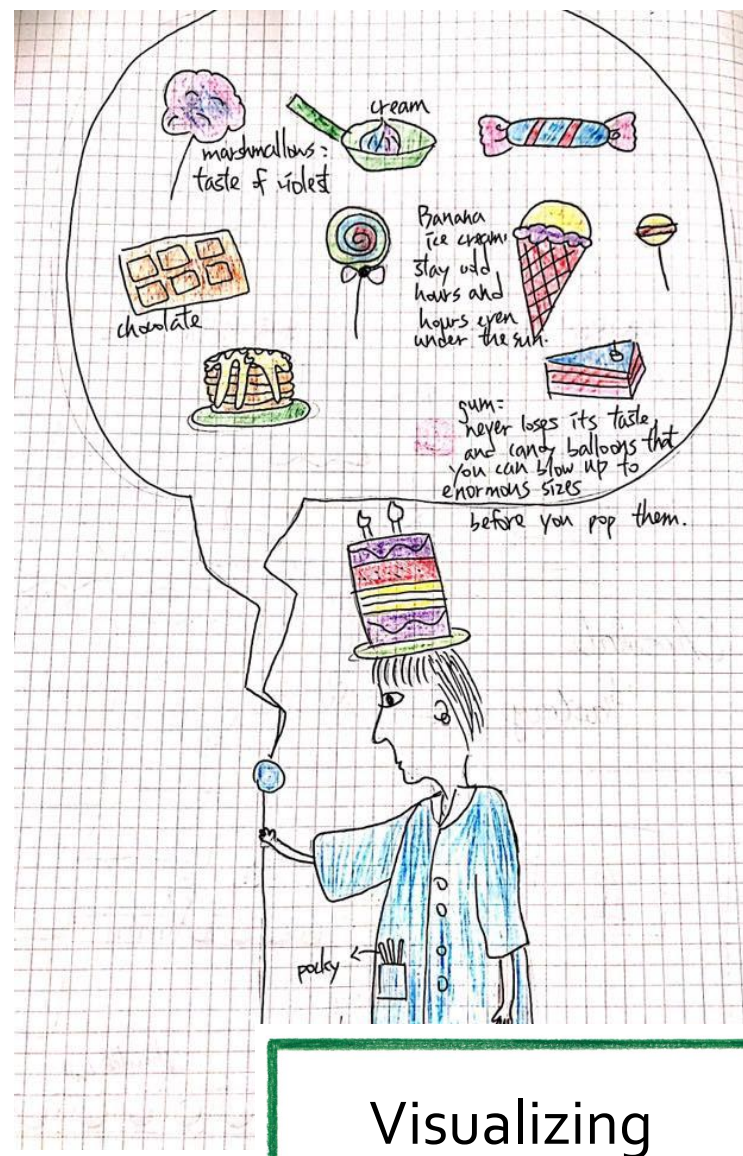 cream
marshmallows:
taste of violest
Banana
ice cream:
stay odd
hours and
hours even
under the sun.
chocolate
gum:
never loses its taste,
and candy balloons that
you can blow up to
enormous sizes
before you pop them.
pocky
Visualizing